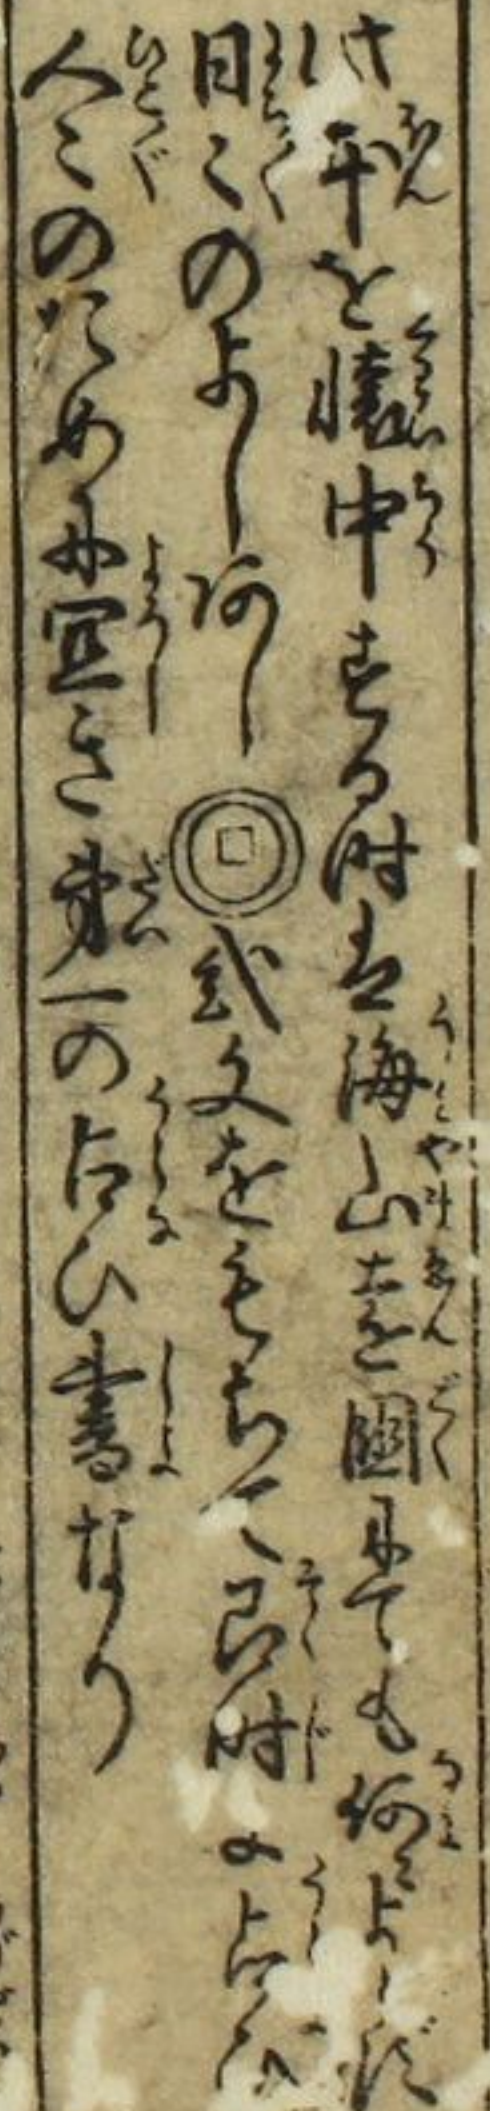 本を懐中する時は海山遠国にても何によらず
日々のよしあし弐文をもちて即時に占ひ
人々のために宜き第一の占ひ書なり